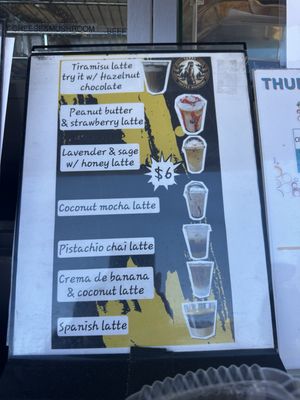 Tiramisu latte
try it w/ Hazelnut
chocolate
Peanut butter
& strawberry latte
Lavender & sage
w/ honey latte
$6
Coconut mocha latte
Pistachio chai latte
Crema de banana
& coconut latte
Spanish latte
THU